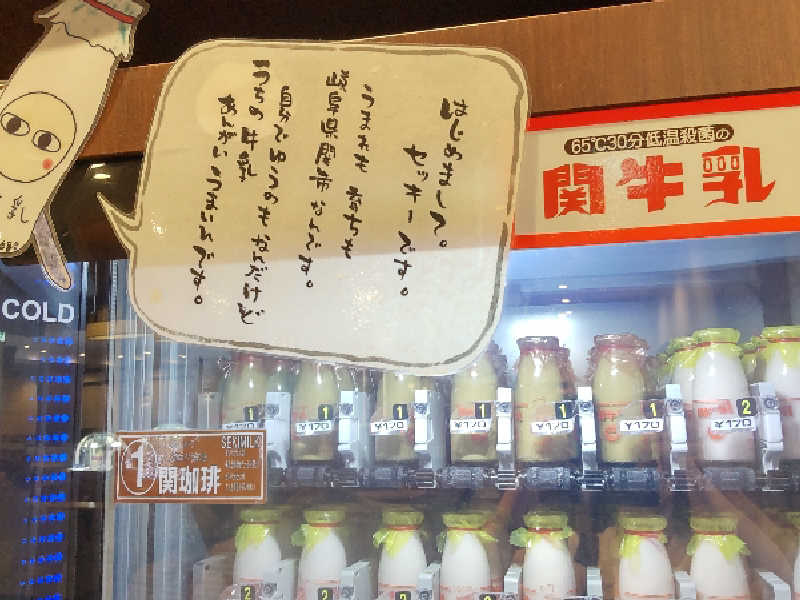 はじめまして。
セッキーです。
うまれも 育ちも
岐阜県関市なんです。
自分でゆうのもなんだけど
うちの牛乳
あんがいうまいんです。
乳
65℃30分低温殺菌の
関牛乳
COLD
1
¥170
1
¥170
1
¥170
1
¥170
1
¥170
1
¥170
2
¥170
SEKIMILK
1
関珈琲
2
2
2
2